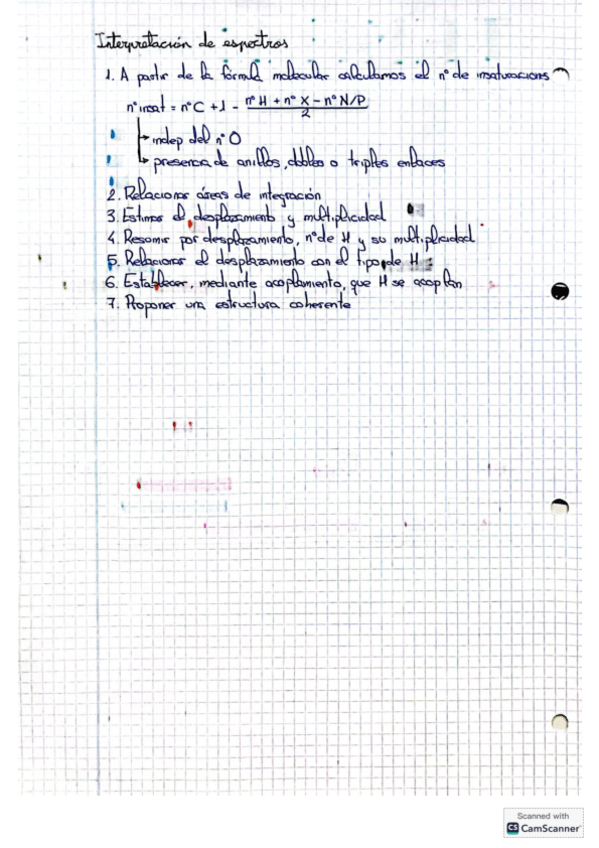 Interpretación de espectros
1. A partir de la fórmula molecular calculamos el nº de insaturacions
nº insat = nºC + 1 - nº H + nº X - nº N/P
2
indep del nº O
presencia de anillos, dobles o triples enlaces
2. Relacionar áreas de integración
3. Estimar el desplazamiento y multiplicidad
4. Resumir por desplazamiento, nº de H y su multiplicidad
5. Relacionar el desplazamiento con el tipo de H
6. Establecer, mediante acoplamiento, que H se acoplan
7. Proponer una estructura coherente
Scanned with
CS CamScanner